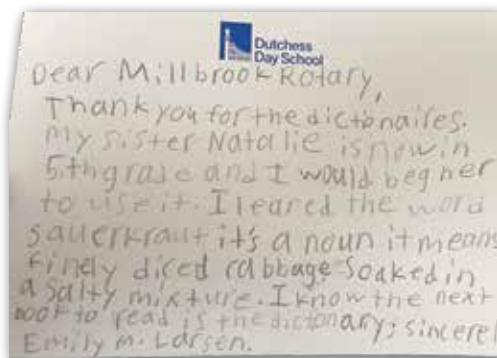 Dutchess
Day School
Dear Millbrook Rotary,
Thank you for the dictonaires.
My sister Natalie is now in
5th grade and I would beg her
to use it. I leared the word
sauerkraut it's a noun it means
finely diced cabbage soaked in
a salty mixture. I know the next
book to read is the dictonary; sincerel
Emily M. Larsen.